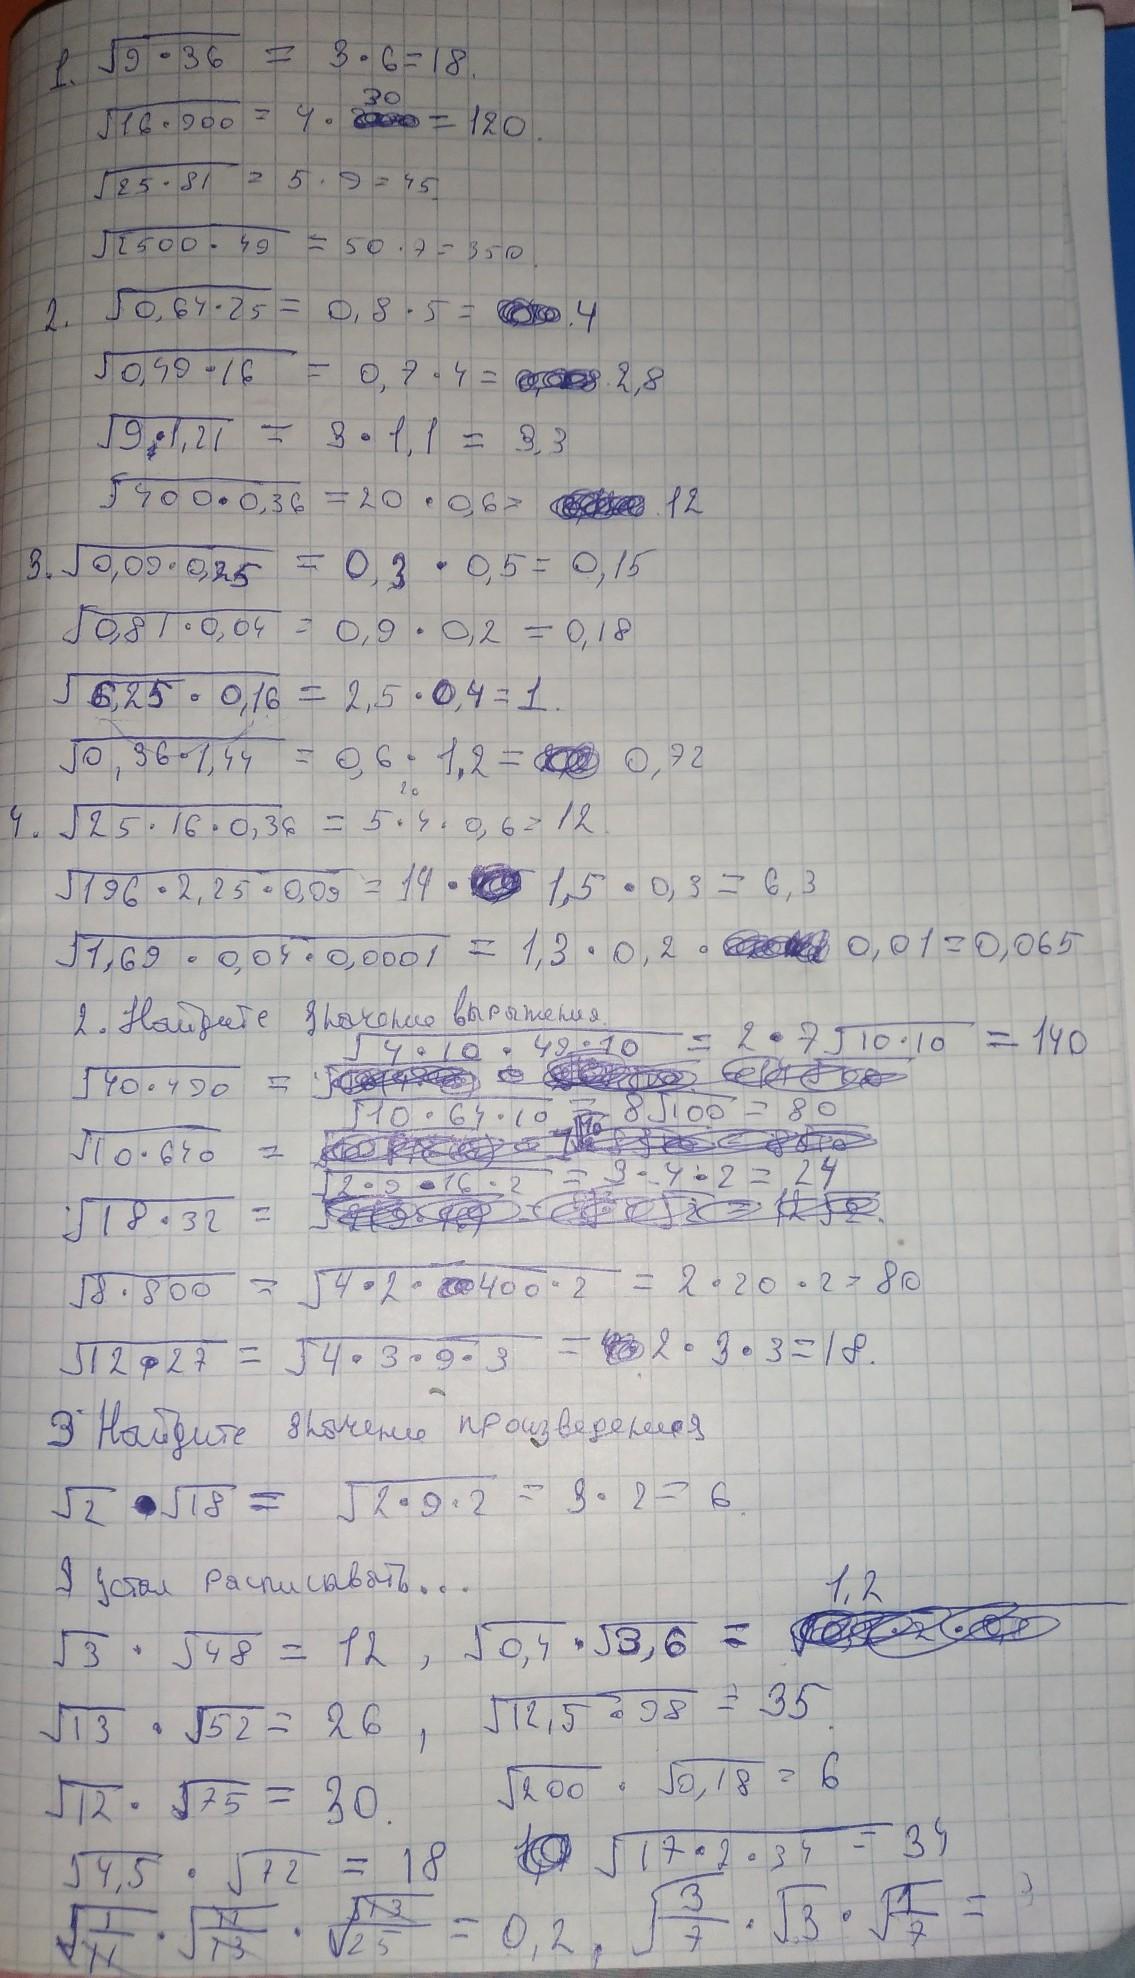 1. √(9·36) = 3·6=18.
√(16·900) = 4·30 = 120.
√(25·81) = 5·9=45
√(2500·49) = 50·7=350.
2. √(0,64·25) = 0,8·5= 4
√(0,49·16) = 0,7·4= 2,8
√(9·1,21) = 3·1,1 = 3,3
√(400·0,36) = 20·0,6= 12
3. √(0,09·0,25) = 0,3·0,5=0,15
√(0,81·0,04) = 0,9·0,2=0,18
√(6,25·0,16) = 2,5·0,4=1.
√(0,36·1,44) = 0,6·1,2= 0,72
20
4. √(25·16·0,36) = 5·4·0,6=12.
√(196·2,25·0,09) = 14· 1,5·0,3=6,3
√(1,69·0,04·0,0001) = 1,3·0,2· 0,01=0,065
2. Найдите значение выражения.
√(40·490) = √(4·10·49·10) = 2·7√(10·10) = 140
√(10·640) = √(10·64·10) = 8√100 = 80
√(18·32) = √(2·9·16·2) = 3·4·2=24
√(8·800) = √(4·2·400·2) = 2·20·2=80
√(12·27) = √(4·3·9·3) = 2·3·3=18.
3 Найдите значение произведения
√2 · √18 = √(2·9·2) = 3·2=6.
Я устал расписывать...
√3 · √48 = 12, √0,4 · √3,6 = 1,2
√13 · √52 = 26, √(12,5·98) = 35.
√12 · √75 = 30. √200 · √0,18 = 6
√4,5 · √72 = 18 √(17·2·34) = 34
√(1/11) · √(11/13) · √(13/25) = 0,2, √(3/7) · √3 · √(1/7) =